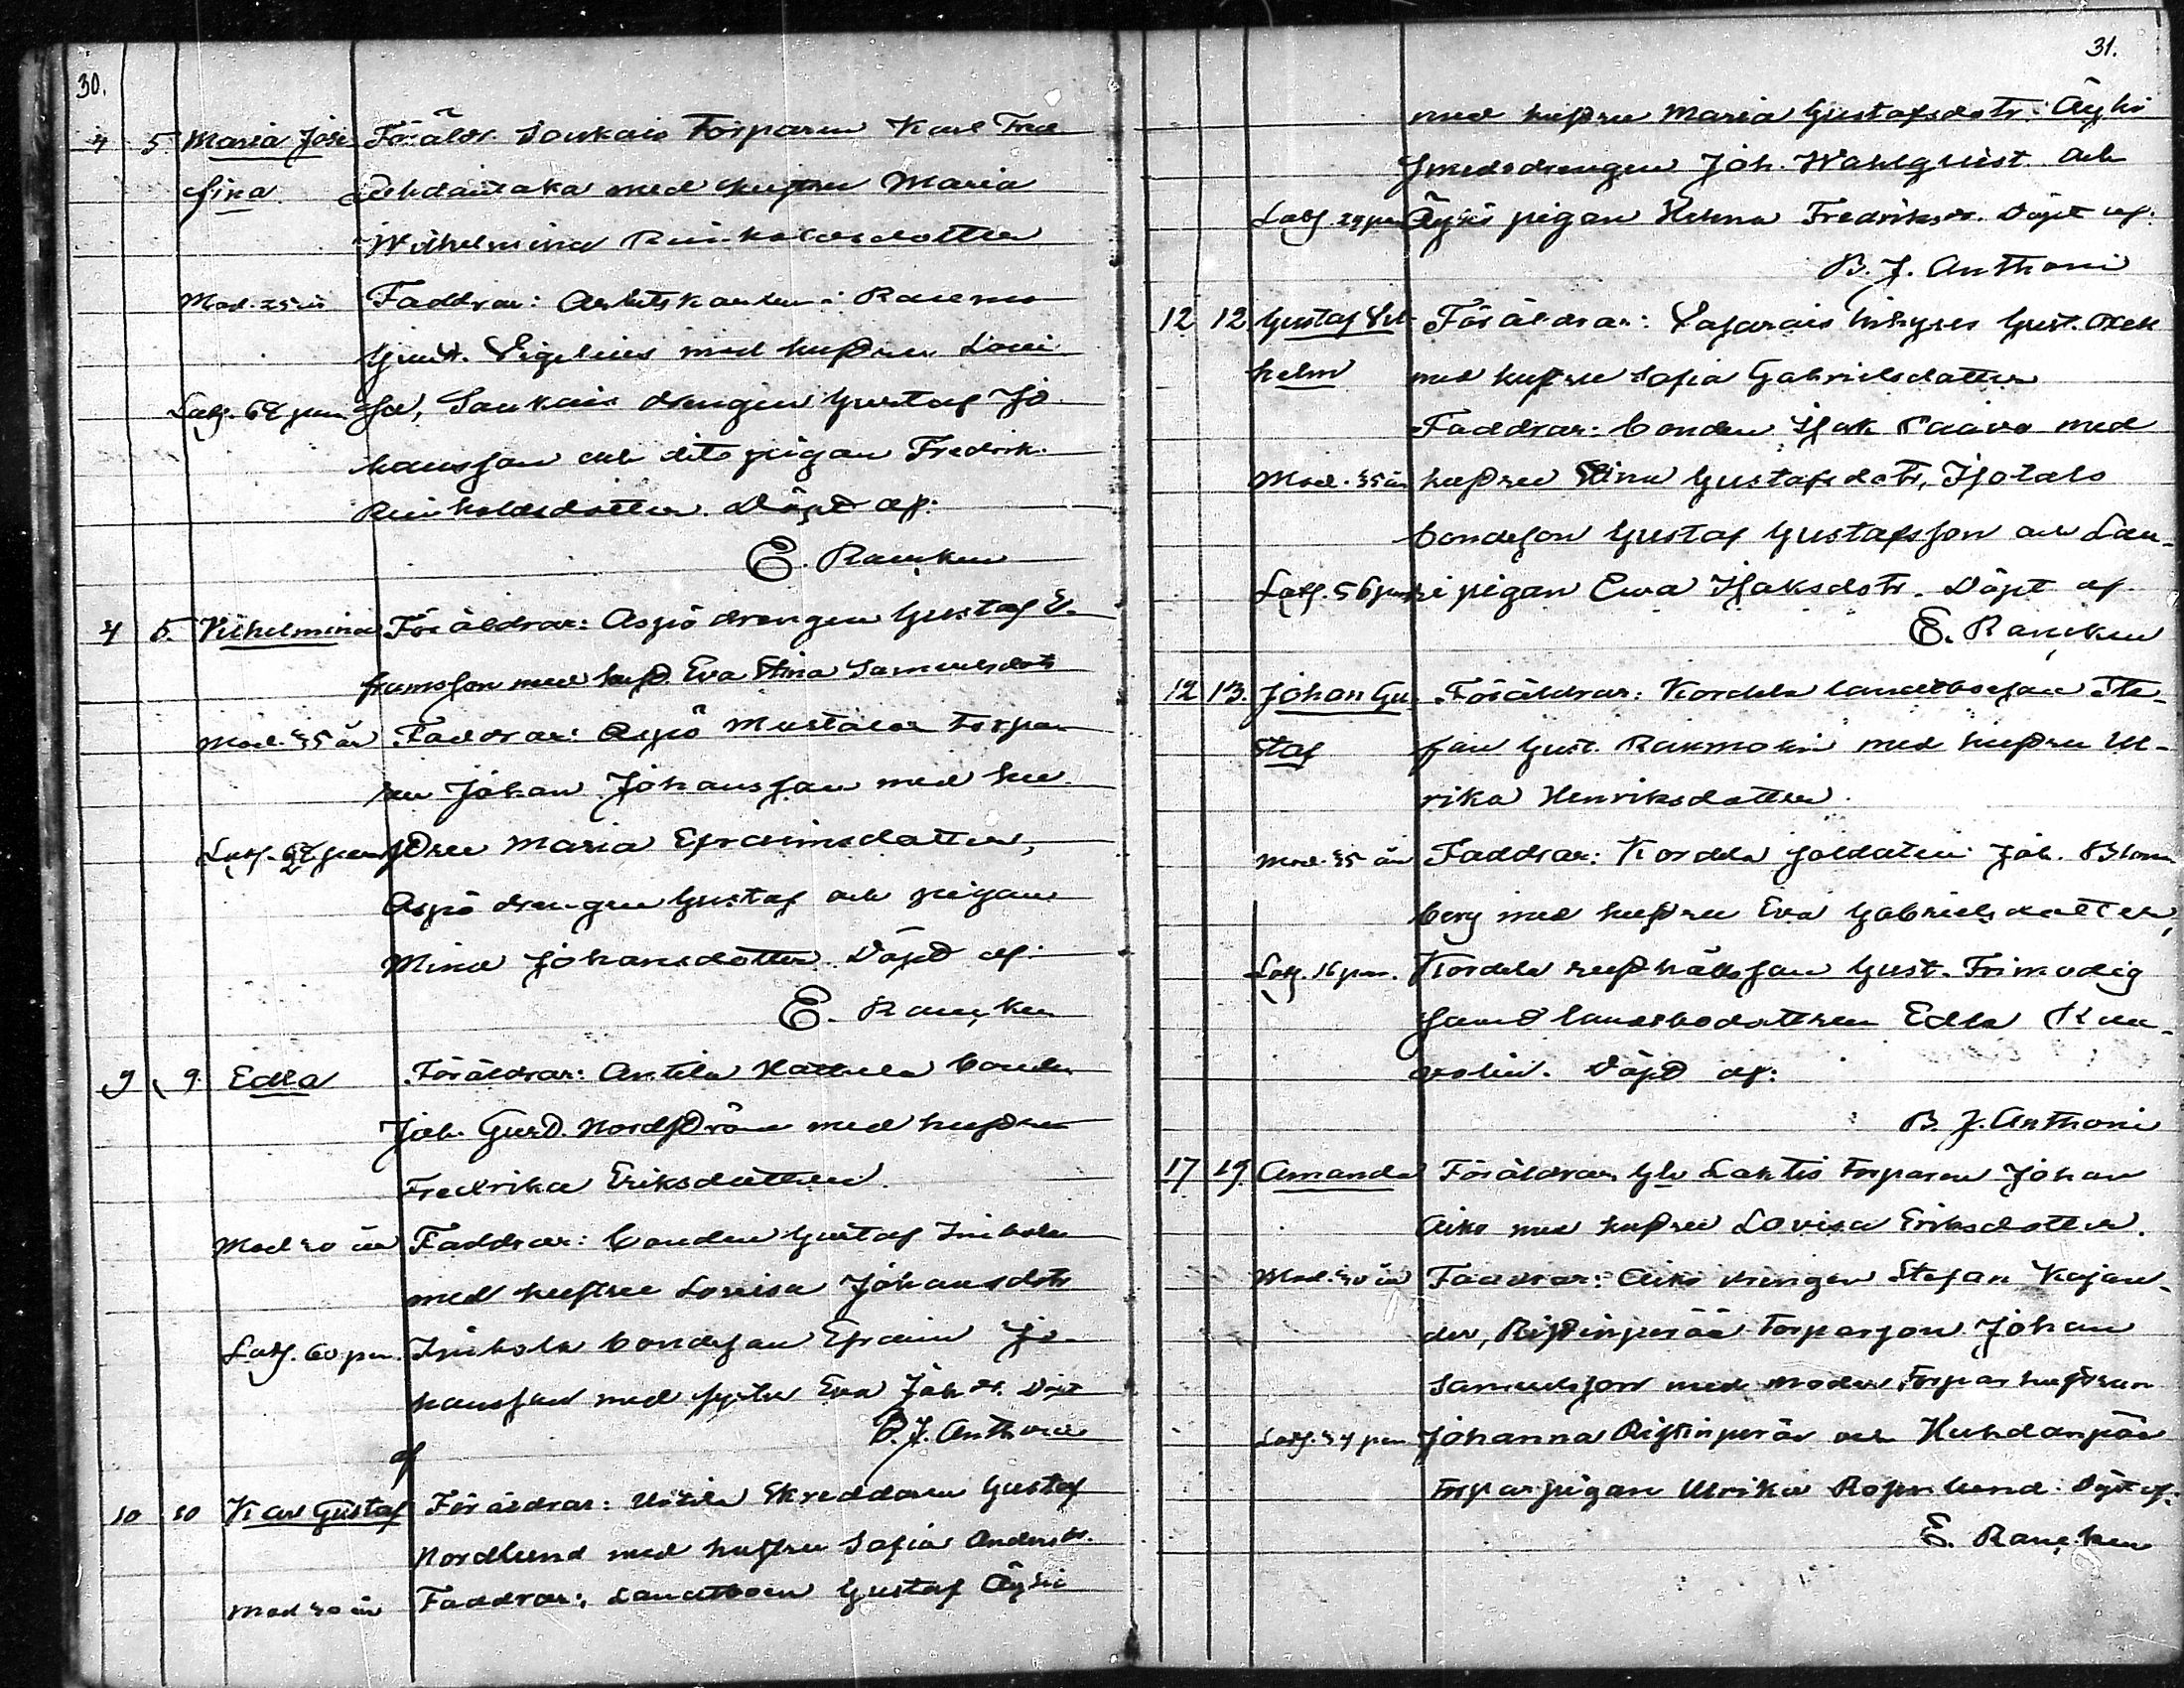 30.
4 5. Maria Jose- Föräldr. Soukais Torparen Karl Fred
fina. Lehdäntaka med hustru Maria
Wilhelmina Reinholdsdotter
Mod. 25 år Faddrar: Arbetskarlen i Raumo
Gust. Vigelius med hustru Lovi-
Latf. 68 pen sa, Soukais drengen Gustaf Jo-
hansson och dito pigan Fredrik.
Reinholdsdotter. Döpt af:
E. Rancken
4 5. Vilhelmina Föräldrar: Aspö drengen Gustaf E-
framsson med hust. Eva Stina Samuelsdotr
Mod. 35 år Faddrar: Aspö Mustalax torpa-
ren Johan Johansson med hu-
Latf. pen stru Maria Epraimsdotter,
Aspö drengen Gustaf och pigan
Mina Johansdotter. Döpt af:
E. Rancken
9 9. Edla Föräldrar: Antila bonden
Joh. Gust. Nordström med hustru
Fredrika Eriksdotter.
Mod 40 år Faddrar: bonden Gustaf Inkola
med hustru Lovisa Johansdotr
Latf. 60 pen. Inkola bondeson Epraim Jo-
hansson med syster Eva Joh dr. Döpt
af B. J. Anthoni
10 10 Karl Gustaf Föräldrar: Skreddaren Gustaf
Nordlund med hustru Sofia Anders dr.
Mod 40 år Faddrar: Landtboen Gustaf Äyhö
31.
med hustru Maria Gustafsdotr. Äyhö
smedsdrengen Joh. Wahlquist och
Latf. 24 pen Äyhö pigan Helena Fredriksdr. Döpt af:
B. J. Anthoni
12 12 Gustaf Vil- Föräldrar: Safarais inhyses Gust. Oxell
helm med hustru Sofia Gabrielsdotter
Faddrar: bonden Isak Paavo med
Mod. 35 år hustru Stina Gustafsdotr, Isotalo
bondeson Gustaf Gustafsson och Lau-
Latf. 56 pen ri pigan Ewa Isaksdotr. Döpt af
E. Rancken
12 13. Johan Gu- Föräldrar: Kordela landtbosson Ste-
staf fan Gust. Rakmolin med hustru Ul-
rika Henriksdotter.
Mod. 35 år Faddrar: Kordela soldaten Joh. Blom-
berg med hustru Eva Gabrielsdotter,
Latf. 16 pen. Kordela rusthållsson Gust. Frimodig
samt landtbodottren Edla
Döpt af:
B. J. Anthoni
17 19. Amanda Föräldrar, Gla Lahtis torparen Johan
Aiko med hustru Lovisa Eriksdotter.
Mod. 40 år Faddrar: Aiko drengen Stefan Kajan-
der, Ristinperää torparson Johan
Samuelsson med moder Torpar hustrun
Latf. 34 pen Johanna Ristinperää och Huhdanpää
torparpigan Ulrika Rosenlund. Döpt af:
E. Rancken